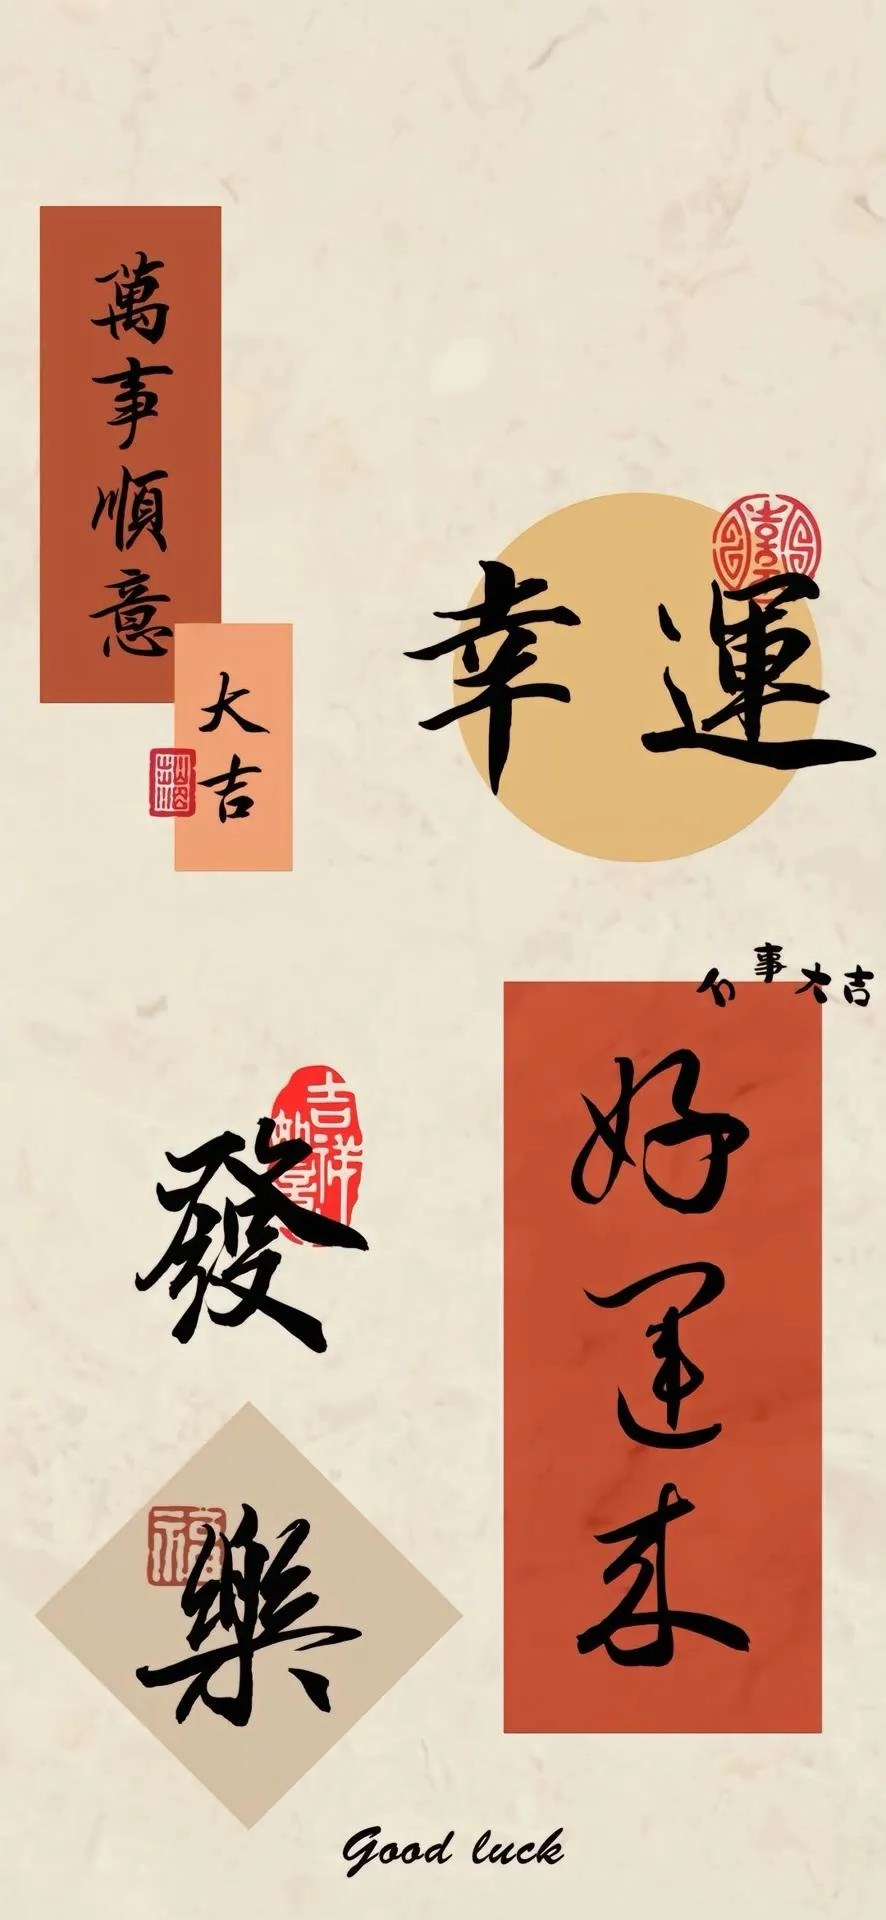 萬事順意
大吉
幸運
事大吉
好運来
吉祥
發
福
樂
Good luck